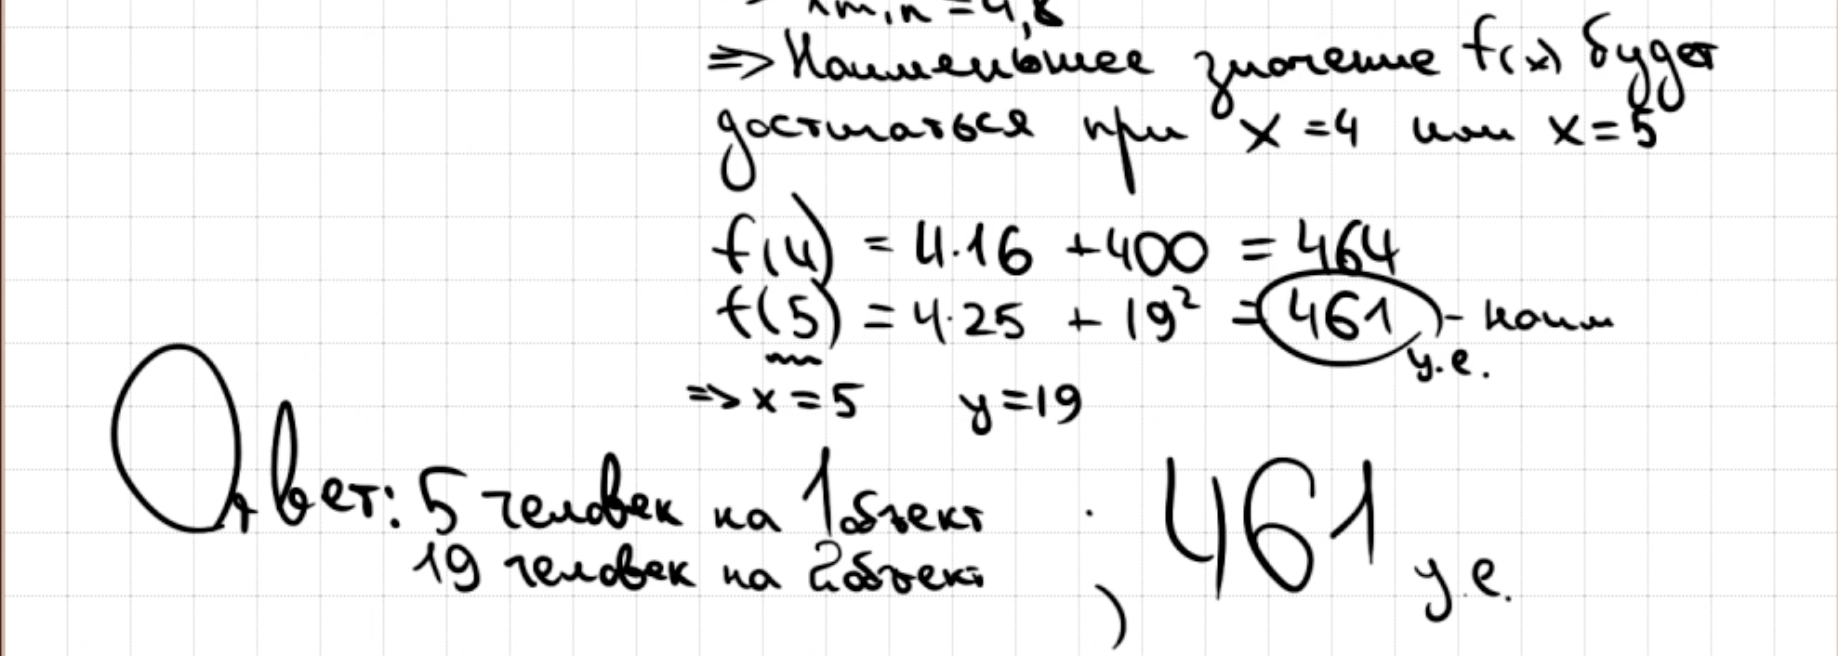 => xmin = 4,8
=> Наименьшее значение f(x) будет
достигаться при x = 4 или x = 5
f(4) = 4·16 + 400 = 464
f(5) = 4·25 + 19² = 461 - наим
у.е.
=> x = 5 y = 19
Ответ: 5 человек на 1 объект ; 461 у.е.
19 человек на 2 объект